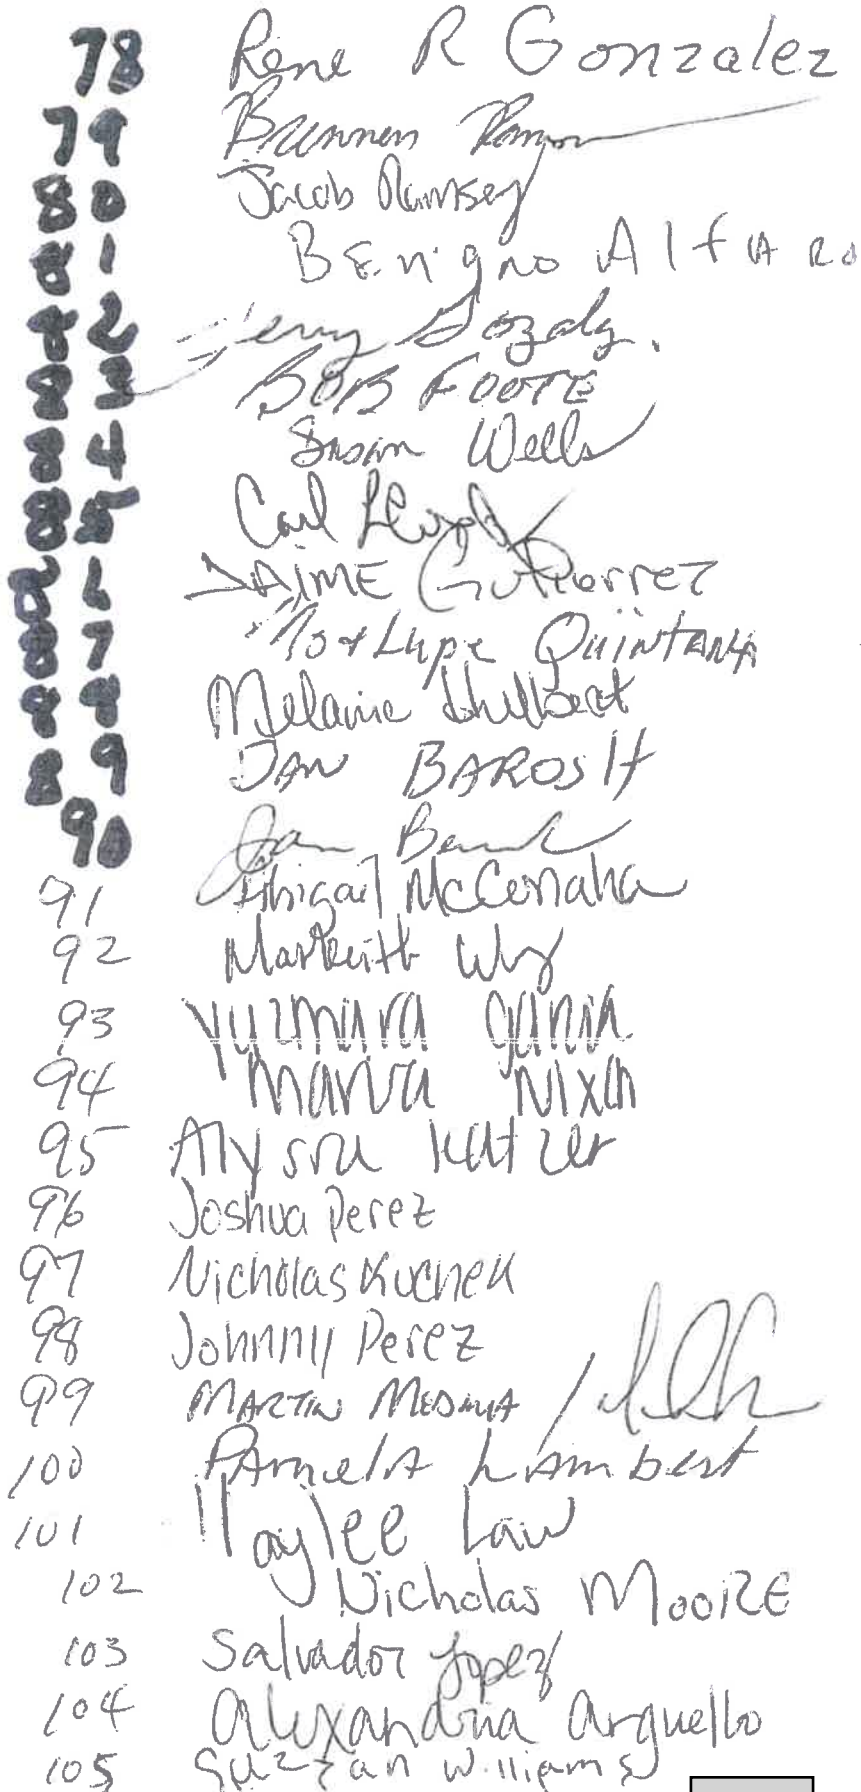 78 Rene R Gonzalez
79 Brennen
80 Jacob Ramsey
81 Benigno Alfaro
82 Jerry
83 BOB FOOTE
84 Susan Wells
85 Carl Lloyd
86 JAIME Gutierrez
87 Mo & Lupe QuinTANA
88 Melanie Hulbert
89 DAN BAROSH
90
91 Abigail McConaha
92 Markeith
93 yuzmara garcia
94 marva Nixon
95 Alyssa Kutzer
96 Joshua Perez
97 Nicholas Kuchen
98 Johnny Perez
99 MARTIN MEDINA /
100 PAmelA LAmbert
101 Haylee Law
102 Nicholas MOORE
103 Salvador Lopez
104 alexandria arguello
105 Suzean Williams